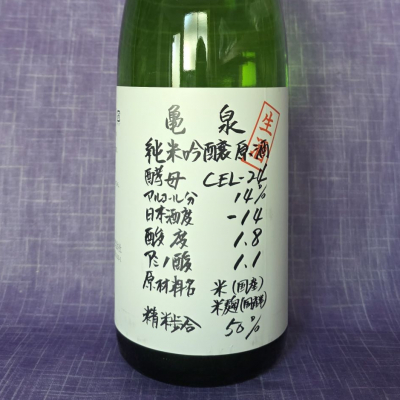 亀 泉
生酒
純米吟醸原酒
酵母 CEL-24
アルコール分 14%
日本酒度 -14
酸度 1.8
アミノ酸 1.1
原材料名 米(国産)
米麹(国産米)
精米歩合 50%